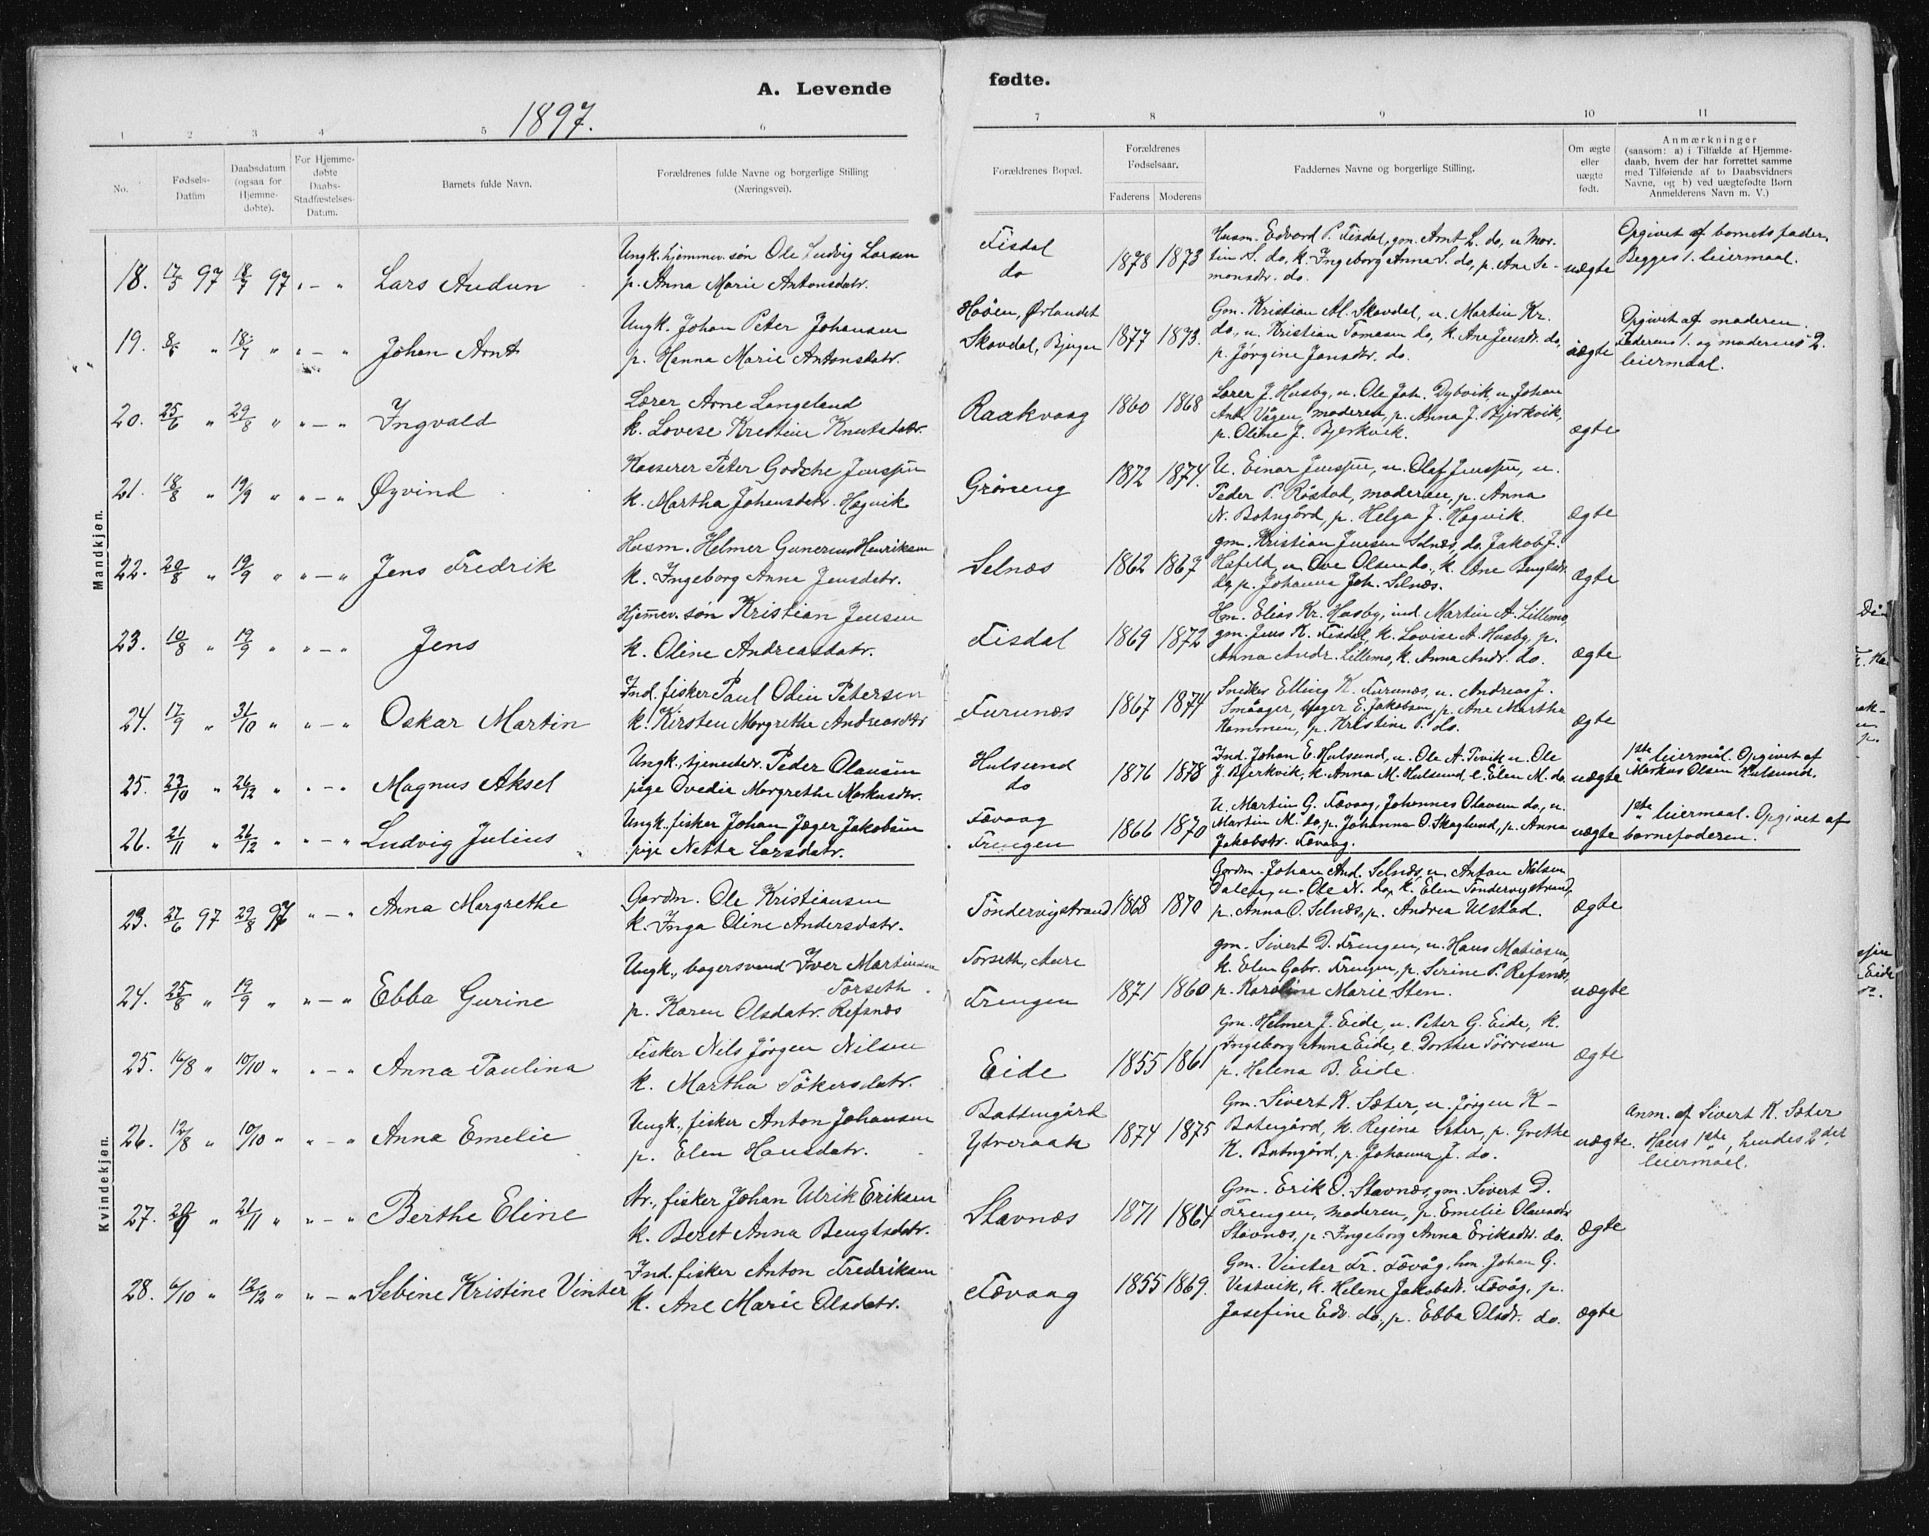 A. Levende fødte.
1897.
1 2 3 4 5 6 7 8 9 10 11
No.
Fødsels-Datum
Daabsdatum (ogsaa for Hjemme-døbte).
For Hjemme-døbte Daabs-Stadfæstelses-Datum.
Barnets fulde Navn.
Forældrenes fulde Navne og borgerlige Stilling (Næringsvei).
Forældrenes Bopæl.
Forældrenes Fødselsaar.
Faderens Moderens
Faddernes Navne og borgerlige Stilling.
Om ægte eller uægte født.
Anmærkninger
(saasom: a) i Tilfælde af Hjemme-
daab, hvem der har forrettet samme
med Tilføiende af to Daabsvidners
Navne, og b) ved uægtefødte Børn
Anmelderens Navn m. V.)
Mandkjøn.
18. 17/5 97 18/7 97 " — " Lars Audun
Ungk. hjemmev. søn Ole Ludvig Larsen
p. Anna Marie Antonsdatr.
Fisdal
do
1878 1873
Husm. Edvard P. Fisdal, gm. Arnt L. do, u. Mor-
tin S. do, k. Ingeborg Anna S. do, p. Ane Si-
monsdtr. do.
uægte
Opgivet af barnets fader,
Begges 1. leiermaal.
19. 8/6 " 18/7 " " — " Johan Arnt
Ungk. Johan Peter Johansen
p. Hanna Marie Antonsdatr.
Høøen, Ørlandet
Skavdal, Bjugn
1877 1873.
Gm. Kristian M. Skavdal, u. Martin Kr.
do, u. Kristian Tomasen do, k. Ane Jensdr. do,
p. Jørgine Jonsdtr. do.
uægte
Opgivet af moderen.
Faderens 1. og moderens 2.
leiermaal.
20. 25/6 " 29/8 " " — " Ingvald
Lærer Arne Langeland
k. Lovise Kristine Knutsdatr.
Raakvaag
1860 1868
Lærer J. Husby, u. Ole Joh. Dybvik, u. Johan
Ant. Vågen, moderen, p. Anna J. Bjerkvik,
p. Oline J. Bjerkvik.
ægte
21. 18/8 " 19/9 " " — " Øyvind
Kasserer Peter Godsche Jenssen
k. Martha Johansdatr. Hagvik
Grøneng
1872 1874.
U. Einar Jenssen, u. Olaf Jenssen, u.
Peder P. Røstad, moderen, p. Anna
N. Botngård, p. Helga J. Hagvik.
ægte
22. 20/8 " 19/9 " " — " Jens Fredrik
Husm. Helmer Gunerius Henriksen
k. Ingeborg Anna Jensdatr.
Selnæs
1862 1867
gm. Kristian Jensen Selnæs, do. Jakob J.
Hafeld, u. Ove Olsen do, k. Ane Bengtsdr.
do, p. Johanna Joh. Selnæs.
ægte
23. 10/8 " 19/9 " " — " Jens
Hjemmev. søn Kristian Jensen
k. Oline Andreasdatr.
Fisdal
1869 1872
Hm. Elias Kr. Husby, ind. Martin A. Lillemo,
gm. Jens K. Fisdal, k. Lovise A. Husby, p.
Anna Andr. Lillemo, k. Anna Andr. do.
ægte
24. 17/9 " 31/10 " " — " Oskar Martin
Ind. fisker Paul Odin Petersen
k. Kirsten Margrethe Andreasdtr
Furunæs
1867 1874
Snidker Elling K. Furunæs, u. Andreas J.
Småager, Jæger E. Jakobsen, p. Ane Martha
Hammen, p. Kristine P. do.
ægte
25. 23/10 " 26/12 " " — " Magnus Aksel
Ungk., tjenestedr. Peder Olausen
pige Ovedie Margrethe Markusdtr.
Hulsund
do
1876 1878
Ind. Johan E. Hulsund, u. Ole A. Tivik u. Ole
J. Bjerkvik, k. Anna M. Hulsund, e. Elen M. do.
uægte
1ste leiermål. Opgivet af
Markus Olsen Hulsund.
26. 21/11 " 26/12 " " — " Ludvig Julius
Ungk. fisker Johan Jæger Jakobsen
pige Netta Larsdatr.
Fævaag
Frengen
1866 1870
U. Martin G. Fævaag, Johannes Olavsen do, u.
Martin M. do, p. Johanna O. Skoglund, p. Anna
Jakobsdtr. Fævaag.
uægte
1ste leiermaal. Opgivet af
barnefaderen.
Kvindekjøn.
23. 27/6 97 29/8 97 " — " Anna Margrethe
Gardm. Ole Kristiansen
k. Inga Oline Andersdatr.
Tøndervigstrand
1868 1870
Gardm. Johan And. Selnæs, u. Anton Nilsen
Dalen, u. Ole N. do, k. Elen Tøndervigstrand,
p. Anna O. Selnæs, p. Andrea Ulstad.
ægte
24. 25/8 " 19/9 " " — " Ebba Gurine
Ungk., bagersvend Iver Martinsen
Forseth
p. Karen Olsdatr. Refsnæs
Forseth, Aure
Frengen
1871 1860
gm. Sivert D. Frengen, u. Hans Matiasen,
k. Elen Gabr. Frengen, p. Serine P. Refsnæs,
p. Karoline Marie Sten.
uægte
25. 16/8 " 10/10 " " — " Anna Paulina
Fisker Nils Jørgen Nilsen
k. Martha Tøkersdatr.
Eide
1855 1861
Gm. Helmer J. Eide, u. Peter G. Eide, k.
Ingeborg Anna Eide, e. Dorthea Tørrisen
p. Helena B. Eide.
ægte
26. 12/8 " 10/10 " " — " Anna Emelie
Ungk., fisker Anton Johansen
p. Elen Hansdatr.
Battengård
Ytreraak
1874 1875
Gm. Sivert K. Sæter, u. Jørgen K-
Batengård, k. Regina Sæter, p. Grethe
K. Batngård, p. Johanna J. do.
uægte.
Anm. af Sivert K. Sæter
Hans 1ste, hendes 2det
leiermaal.
27. 20/9 " 21/11 " " — " Berthe Eline
Str., fisker Johan Ulrik Eriksen
k. Beret Anna Bengtsdatr.
Stavnæs
1871 1864
Gm. Erik O. Stavnæs, gm. Sivert D.
Frengen, moderen, p. Emelie Olausdtr
Stavnæs, p. Ingeborg Anna Eriksdtr. do.
ægte
28. 6/10 " 12/12 " " — " Sebine Kristine Vinter
Ind. fisker Anton Fredriksen
k. Ane Marie Olsdatr.
Fævaag
1855 1869.
Gm. Vinter Fr. Fævåg, hm. Johan G.
Vestvik, k. Helene Jakobsdr. Fævåg, p.
Josefine Edv. do., p. Ebba Olsdr. do.
ægte